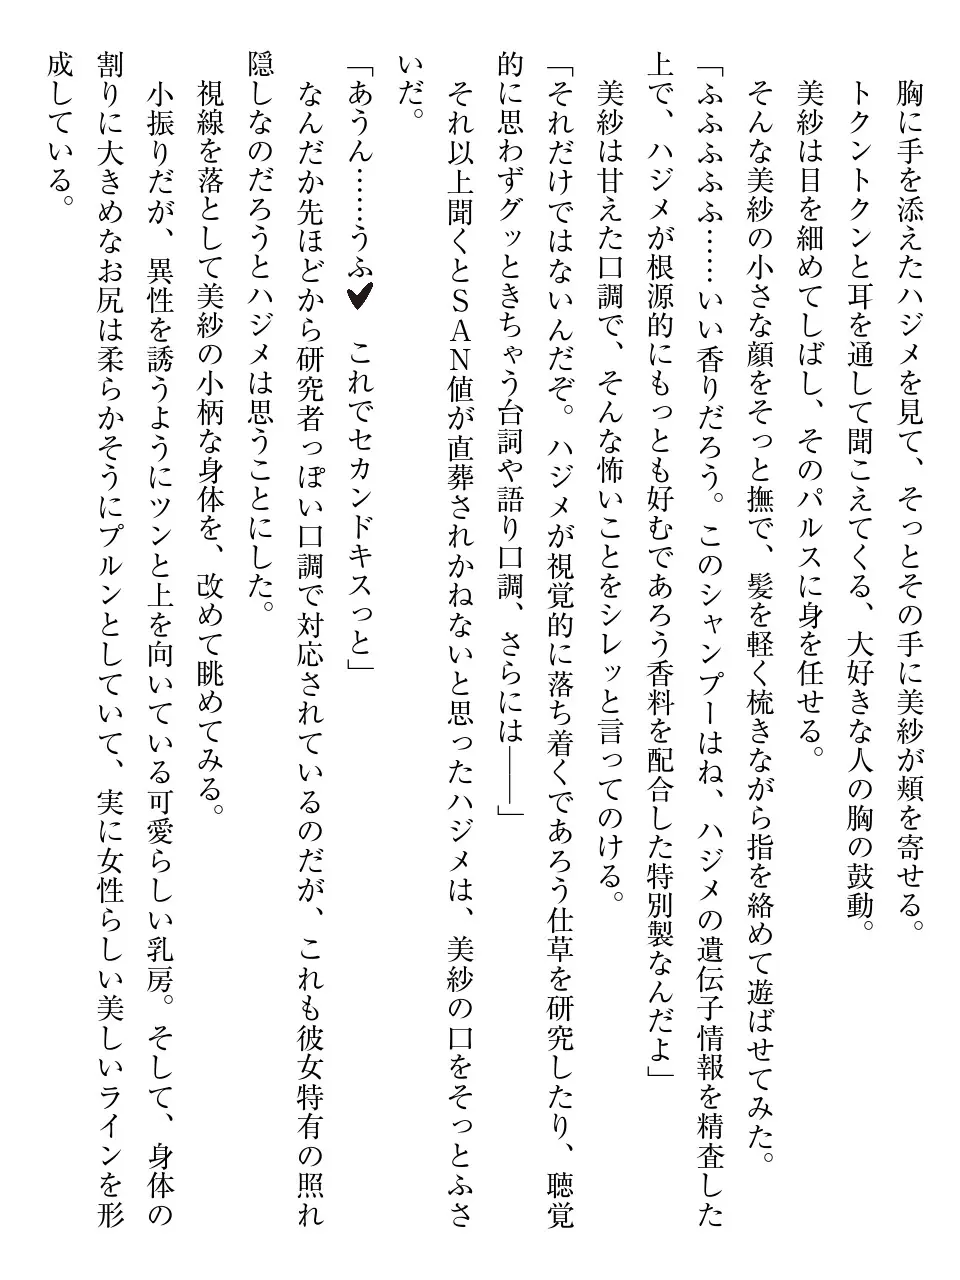 胸に手を添えたハジメを見て、そっとその手に美紗が頬を寄せる。
トクントクンと耳を通して聞こえてくる、大好きな人の胸の鼓動。
美紗は目を細めてしばし、そのパルスに身を任せる。
そんな美紗の小さな顔をそっと撫で、髪を軽く梳きながら指を絡めて遊ばせてみた。
「ふふふふ……いい香りだろう。このシャンプーはね、ハジメの遺伝子情報を精査した
上で、ハジメが根源的にもっとも好むであろう香料を配合した特別製なんだよ」
美紗は甘えた口調で、そんな怖いことをシレッと言ってのける。
「それだけではないんだぞ。ハジメが視覚的に落ち着くであろう仕草を研究したり、聴覚
的に思わずグッときちゃう台詞や語り口調、さらには――」
それ以上聞くとＳＡＮ値が直葬されかねないと思ったハジメは、美紗の口をそっとふさ
いだ。
「あうん……うふ♥　これでセカンドキスっと」
なんだか先ほどから研究者っぽい口調で対応されているのだが、これも彼女特有の照れ
隠しなのだろうとハジメは思うことにした。
視線を落として美紗の小柄な身体を、改めて眺めてみる。
小振りだが、異性を誘うようにツンと上を向いている可愛らしい乳房。そして、身体の
割りに大きめなお尻は柔らかそうにプルンとしていて、実に女性らしい美しいラインを形
成している。